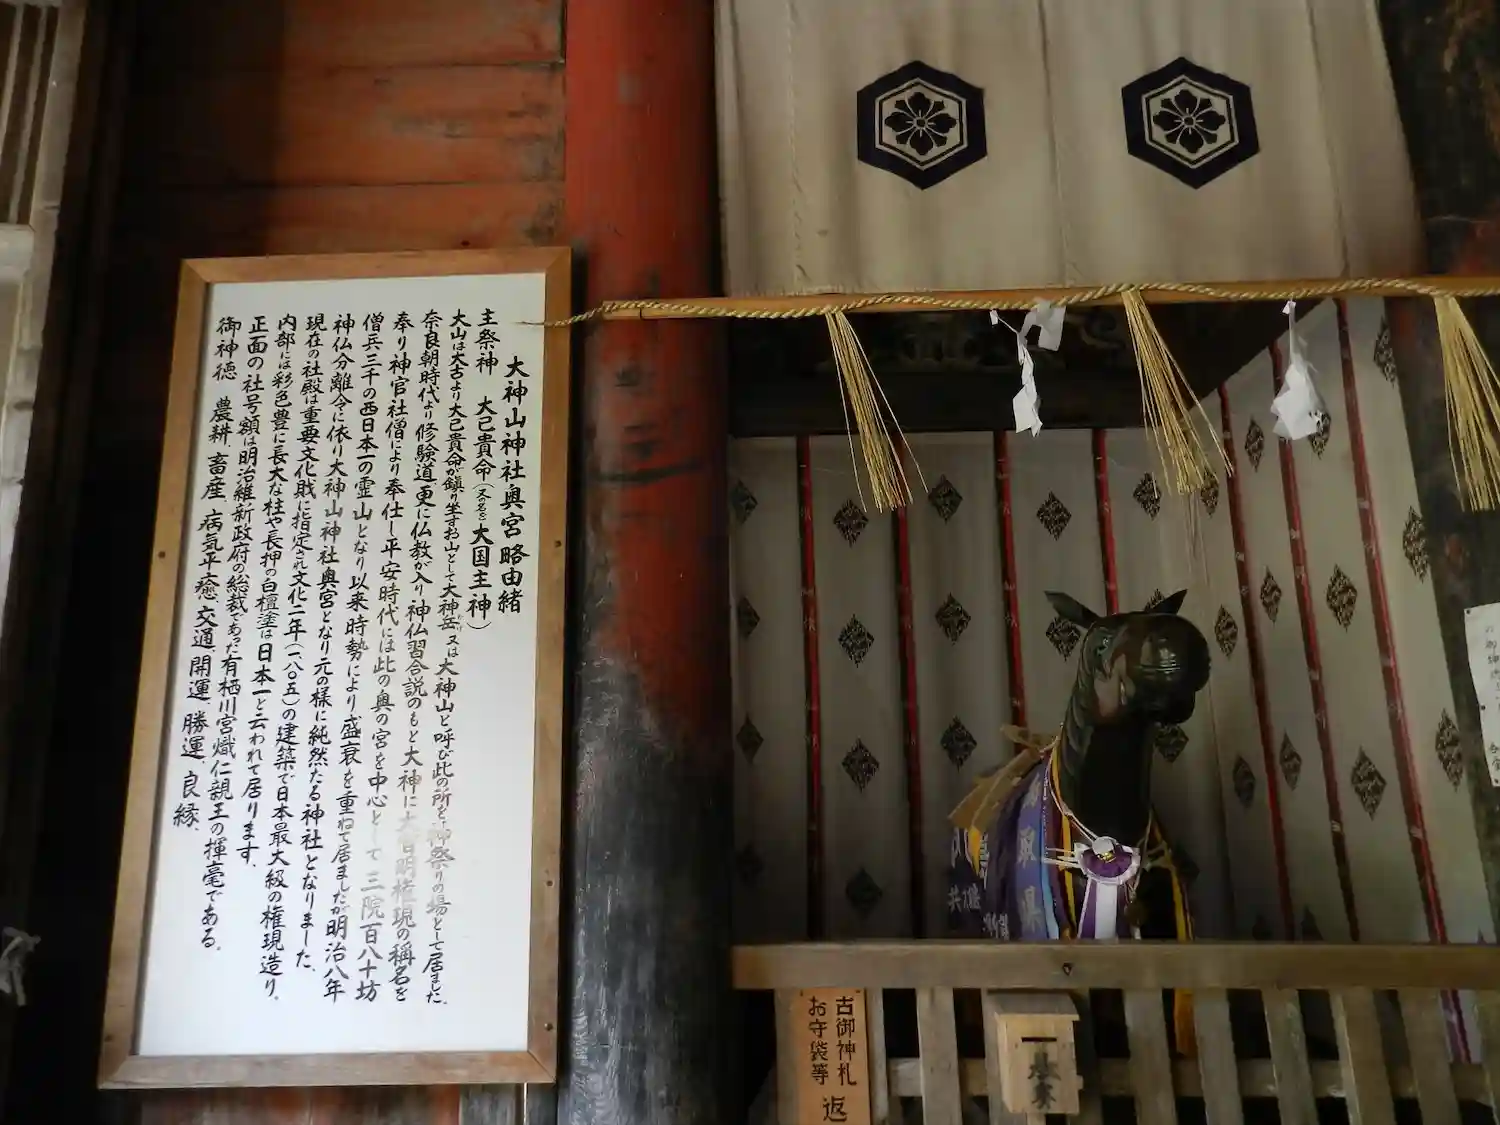 大神山神社奥宮略由緒
主祭神 大己貴命(又の名を大国主神)
大山は太古より大己貴命が鎮り坐すお山として大神岳又は大神山と呼び此の所を神祭りの場として居ました、
奈良朝時代より修験道更に仏教が入り神仏習合説のもと大神に大智明権現の稱名を
奉り神官社僧により奉仕し平安時代には此の奥の宮を中心として三院百八十坊
僧兵三千の西日本一の霊山となり以来時勢により盛衰を重ねて居ましたが明治八年
神仏分離令に依り大神山神社奥宮となり元の様に純然たる神社となりました、
現在の社殿は重要文化財に指定され文化二年(一八〇五)の建築で日本最大級の権現造り、
内部には彩色豊に長大な柱や長押の白檀塗は日本一と云われて居ります、
正面の社号額は明治維新政府の総裁であった有栖川宮熾仁親王の揮毫である、
御神徳 農耕、畜産、病気平癒、交通、開運、勝運、良縁、
古御神札
お守袋等
返